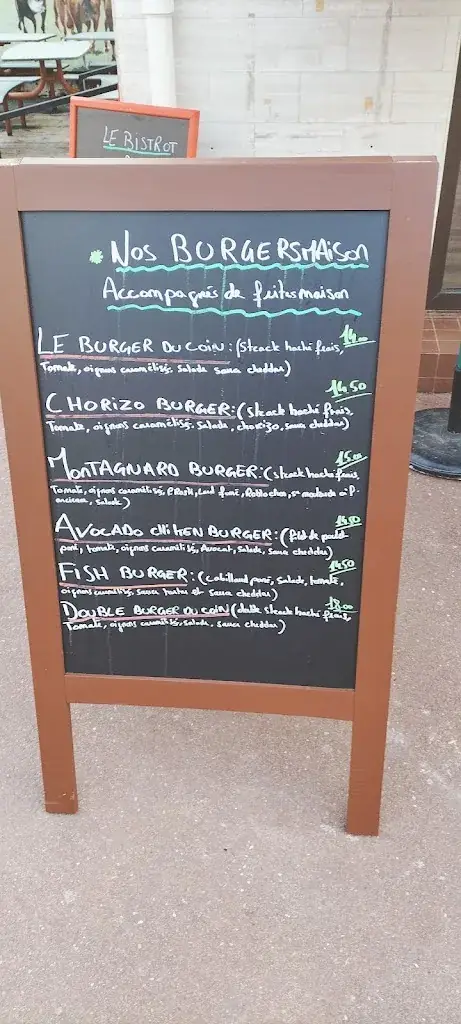 LE BISTROT
* NOS BURGERS MAISON
Accompagnés de frites maison
14.-
LE BURGER DU COIN: (Steack haché frais,
Tomate, oignons caramélisés, Salade Sauce cheddar)
14.50
CHORIZO BURGER: (Steak haché frais,
Tomate, oignons caramélisés, Salade, chorizo, sauce cheddar)
15.00
MONTAGNARD BURGER: (steack haché frais,
Tomate, oignons caramélisés, Lard fumé, Reblochon, moutarde à l'
ancienne, Salade)
14.50
AVOCADO CHIKEN BURGER: (filet de poulet
pané, tomate, oignons caramélisés, Avocat, Salade, Sauce cheddar)
14.50
FISH BURGER: (Cabillaud pané, Salade, tomate,
oignons caramélisés, Sauce tartare et Sauce cheddar)
18.00
DOUBLE BURGER DU COIN (double Steack haché frais,
Tomate, oignons caramélisés, Salade, Sauce cheddar)